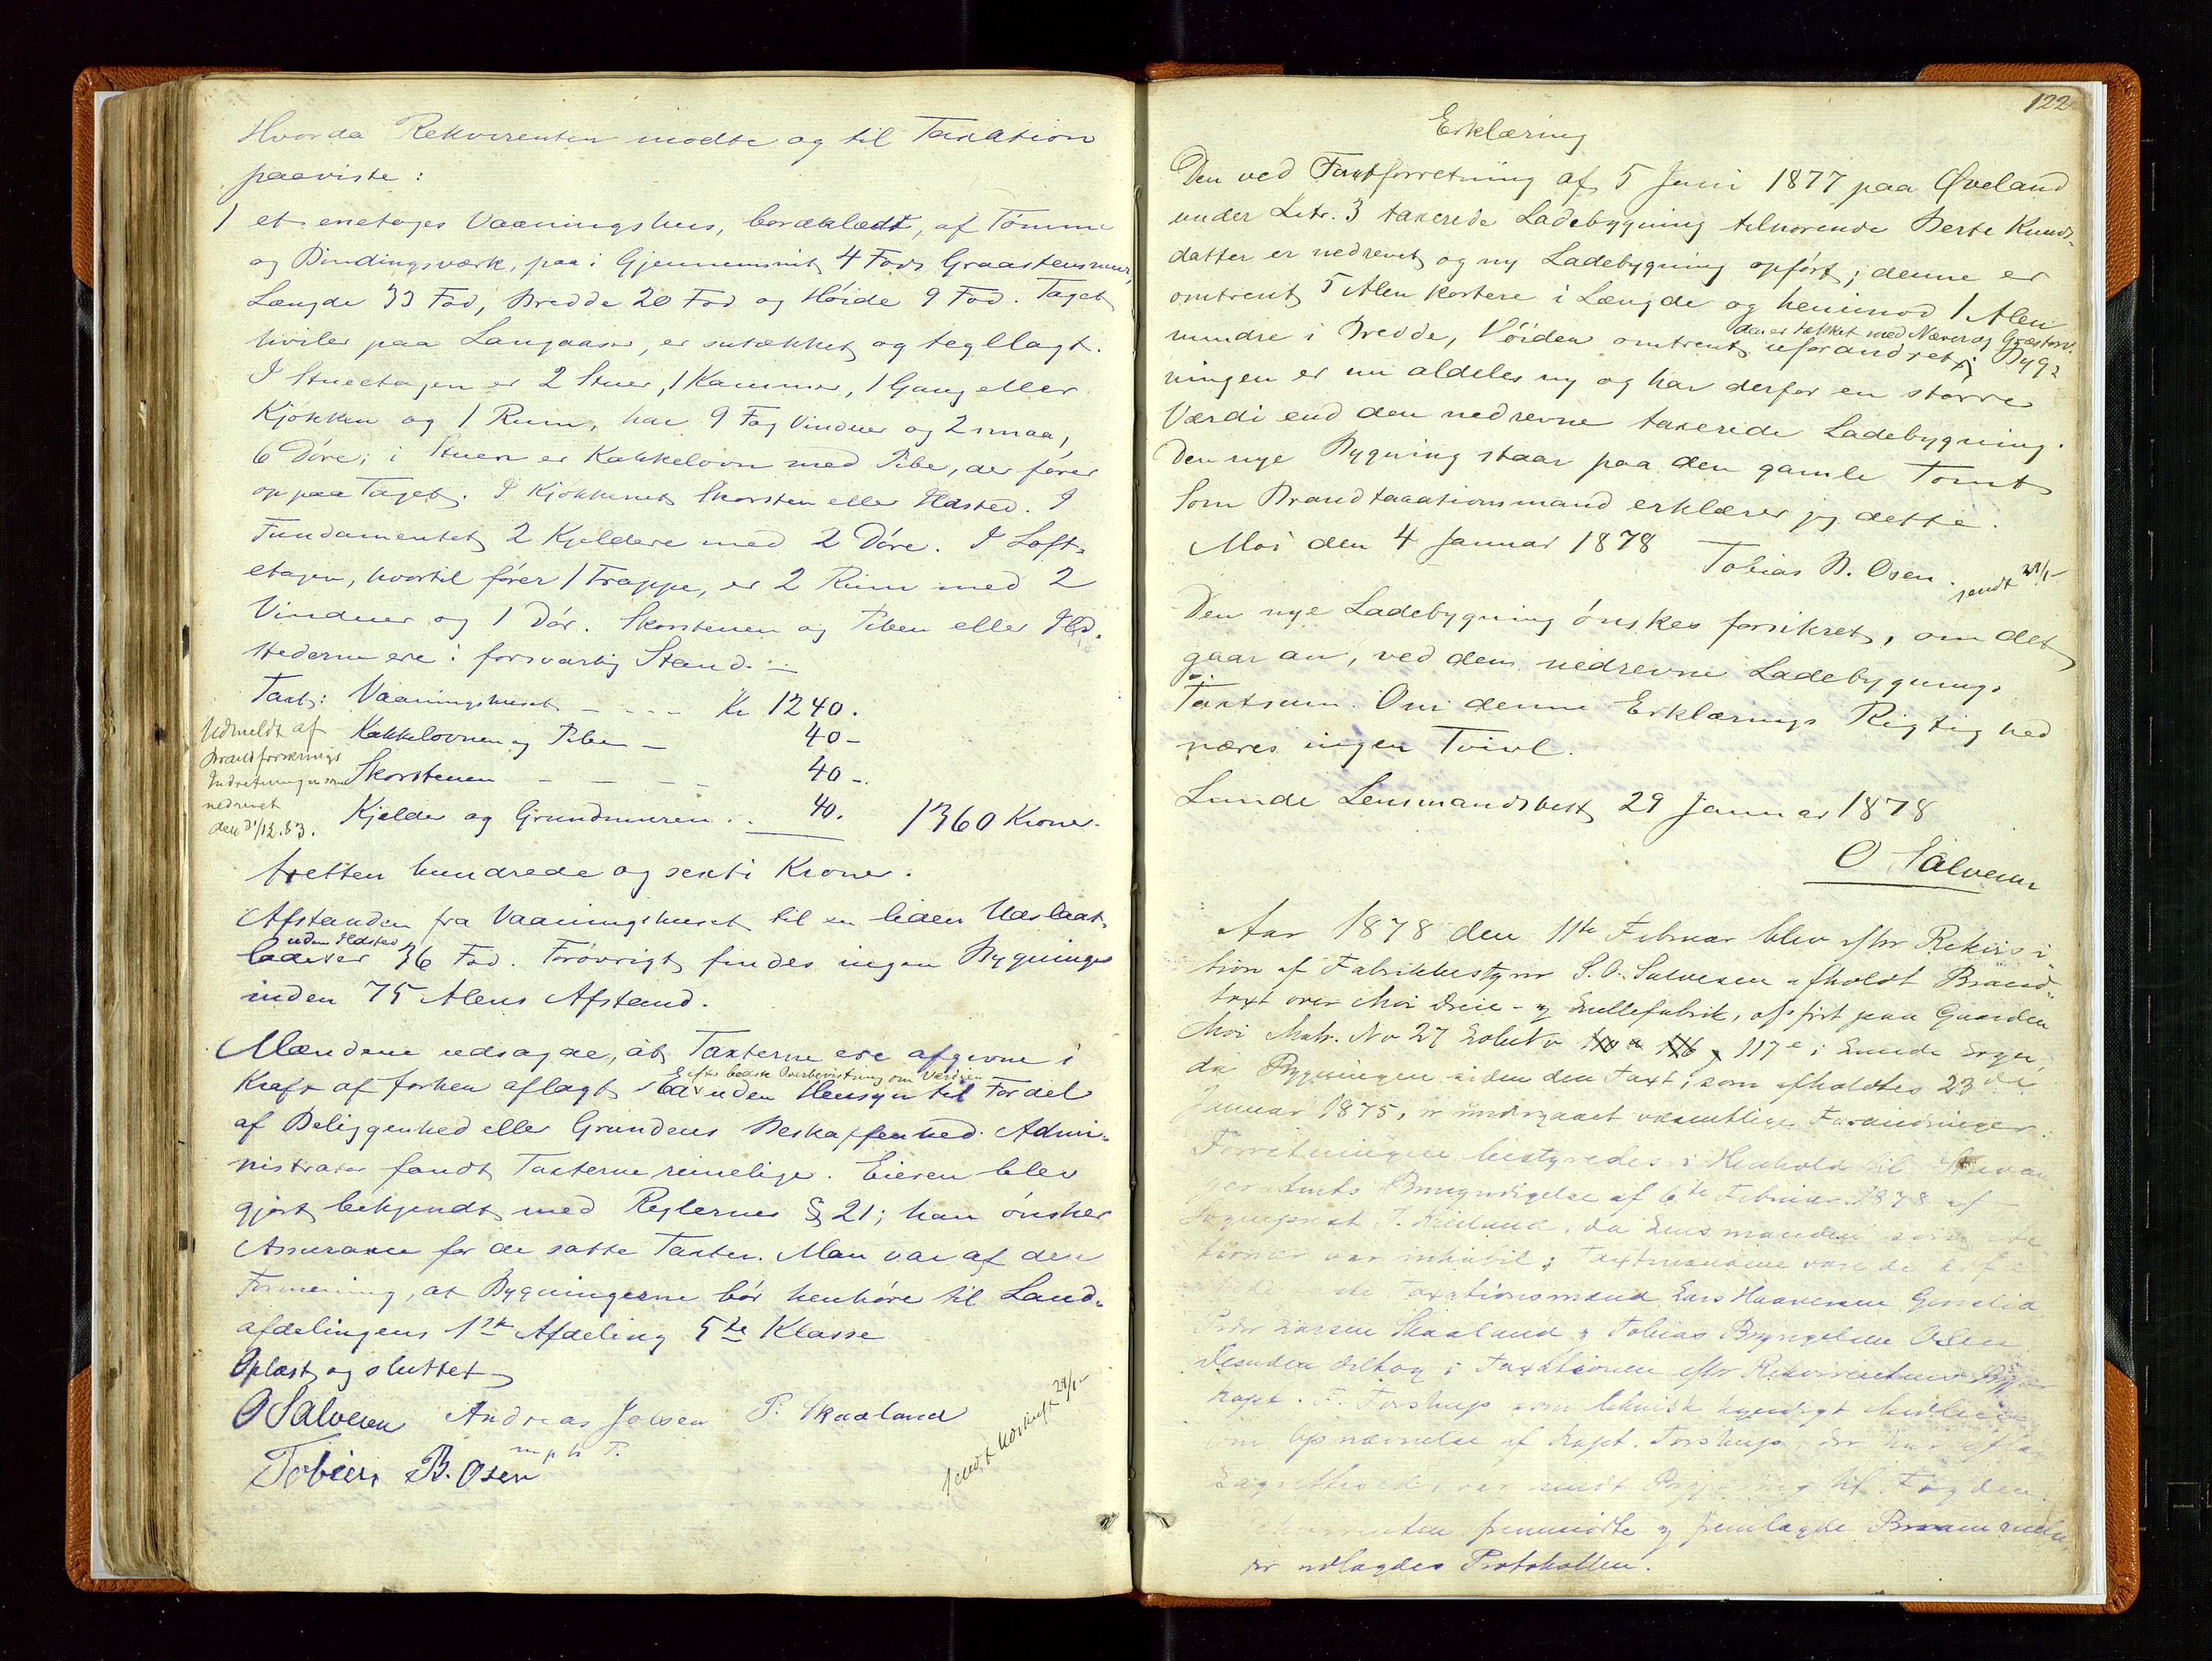 Hvorda Rekvirenten mødte og til Taxation
paaviste:
1 et enetages Vaaningshus, bordklædt, af Tømmer
og Bindingsværk, paa i Gjennemsnit 4 Fods Graastensmur,
Længde 33 Fod, Bredde 20 Fod og Høide 9 Fod. Taget
hviler paa Langaaser, er sutækket og tegllagt.
I Stueetagen er 2 Stuer, 1 Kammer, 1 Gang eller
Kjøkken og 1 Rum, har 9 Fag Vinduer og 2 smaa,
6 Døre; i Stuen er Kakkelovn med Pibe, der fører
op paa Taget. I Kjøkkenet Skorsten eller Ildsted. I
Fundamentet 2 Kjeldere med 2 Døre. I Loft-
etagen, hvortil fører 1 Trappe, er 2 Rum med 2
Vinduer og 1 Dør. Skorstenen og Piben eller Ild-
stederne ere i forsvarlig Stand. -
Taxt: Vaaningshuset - - - - Kr 1240.
Kakkelovnen og Piben - 40 -
Skorstenen - - - - 40 -
Kjelder og Grundmuren . . 40. 1360 Kroner.
Udmeldt af
Brandforsikrings
Indretningen som
nedrevet
den 31/12.83.
tretten hundrede og sexti Kroner.
Afstanden fra Vaaningshuset til en liden Udslaat-
lade uden Ildsted er 36 Fod. Forøvrigt findes ingen Bygninger
inden 75 Alens Afstand.
Mændene udsagde, at Taxterne ere afgivne i
Kraft af forhen aflagt Ed efter bedste Overbevisning om Værdien uden Hensyn til Fordel
af Beliggenhed eller Grundens Beskaffenhed. Admi-
nistrator fandt Taxterne rimelige. Eieren blev
gjort bekjendt med Reglernes § 21; han ønsker
Assurance for de satte Taxter. Man var af den
Formening, at Bygningerne bør henhøre til Land-
afdelingens 1ste Afdeling 5te Klasse
Oplæst og sluttet
O Salvesen Andreas Joesen P. Skaaland
m p h P.
Tobias B. Osen
sendt 29/1-
122
Erklæring
Den ved Taxtforretning af 5 Juni 1877 paa Øveland
under Litr. 3 taxerede Ladebygning tilhørende Berte Knuds-
datter er nedrevet og ny Ladebygning opført; denne er
omtrent 5 Alen kortere i Længde og henimod 1 Alen
mindre i Bredde, Høiden omtrent uforandret; den er tækket med Næver og Græstorv. Byg-
ningen er nu aldeles ny og har derfor en større
Værdi end den nedrevne taxerede Ladebygning.
Den nye Bygning staar paa den gamle Tomt
Som Brandtaxationsmand erklærer jeg dette.
Moi den 4 Januar 1878
Tobias B. Osen.
sendt 29/1-
Den nye Ladebygning ønskes forsikret, om det
gaar an, ved den nedrevne Ladebygnings
Taxtsum. Om denne Erklærings Rigtighed
næres ingen Tvivl.
Lunde Lensmandsbest. 29 Januar 1878
O Salvesen
Aar 1878 den 11te Februar blev efter Rekvisi-
tion af Fabrikbestyrer S. O. Salvesen afholdt Brand-
taxt over Moi Dreie- og Snellefabrik, opført paa Gaarden
Moi Matr. No 27 Løbe No 117e i Lunde Sogn,
da Bygningen siden den Taxt, som afholdtes 23de
Januar 1875, er undergaaet væsentlige Forandringer.
Forretningen bestyredes i Henhold til Stavan-
ger Amts Bemyndigelse af 6te Februar 1878 af
Sogneprest J. Kielland, da Lensmanden som
var inhabil; Taxtmændene vare de
Taxationsmænd Lars Haavesen
Peder Larsen Skaaland og Tobias Bryngelsen Osen
Desuden deltog i Taxationen efter Rekvirentens
Kapt. F. Forstrup som teknisk kyndigt
om Opnævnelse af Kapt. Forstrup, der har
var sendt til Fogden.
fremmødte og fremlagde
der vedlagdes Protokollen.